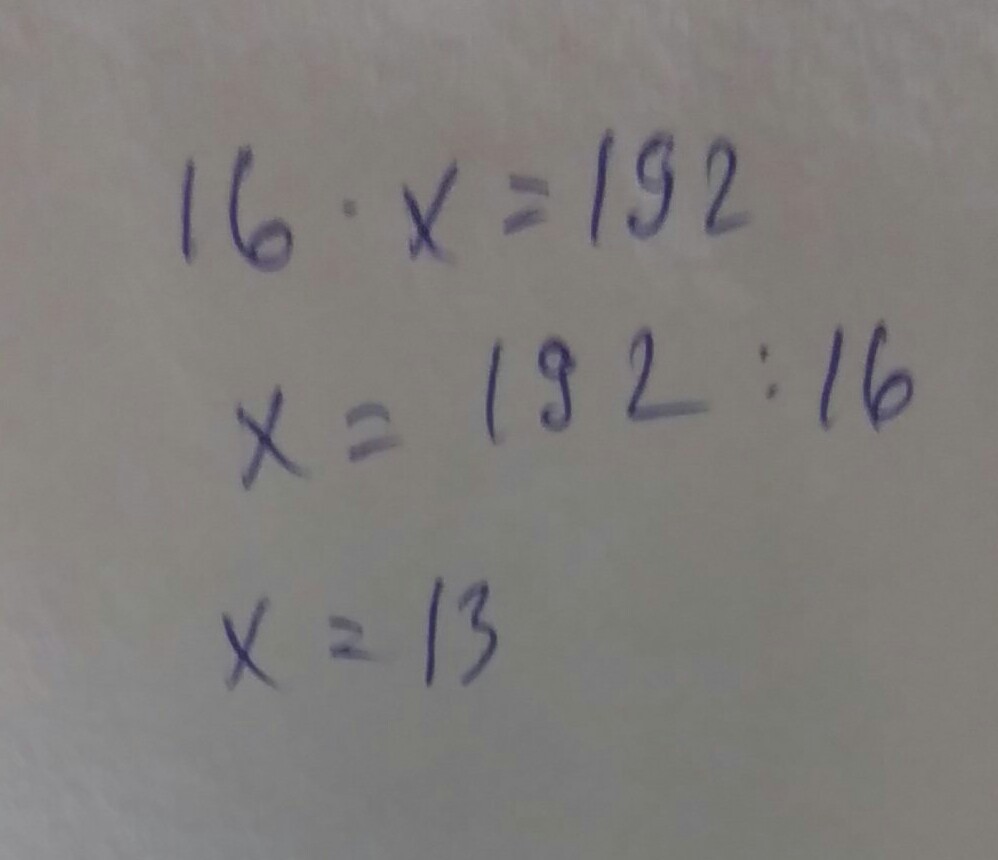 16 · x = 192
x = 192 : 16
x = 13